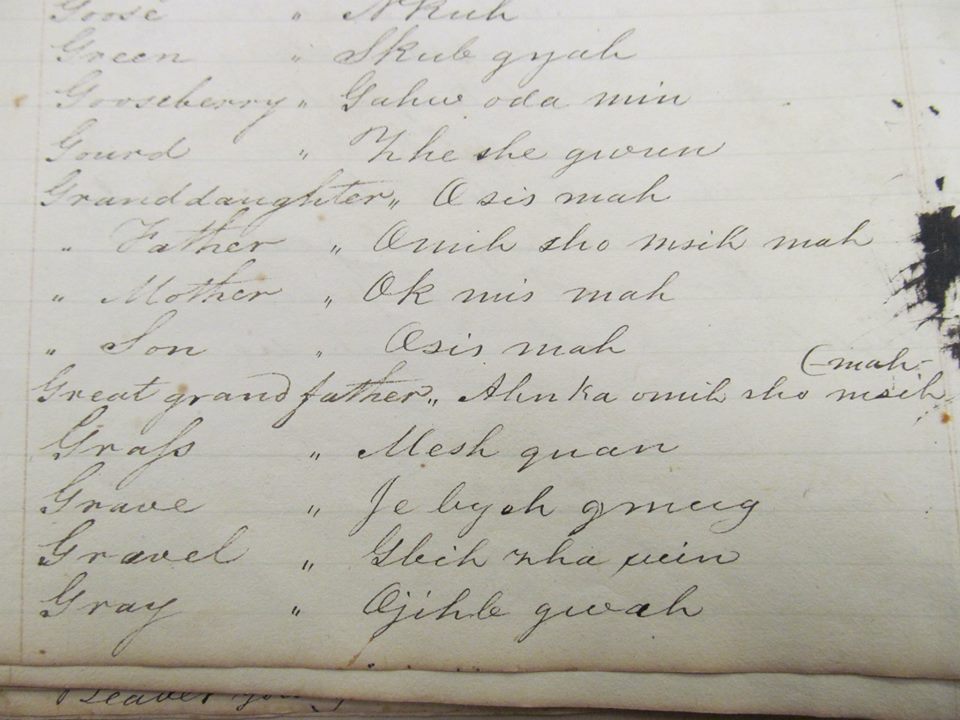 Goose " Nkuh
Green " Skub gyah
Gooseberry " Gahw oda min
Gourd " Zhe she gwun
Granddaughter " O sis mah
" Father " Omih sho msih mah
" Mother " Ok mis mah
" Son " Osis mah
(mah-
Great grand father " Ahnka omih sho msih-
Grass " Mesh quan
Grave " Je bych gmeeg
Gravel " Gbih zha win
Gray " Ojihb gwah
Beaver